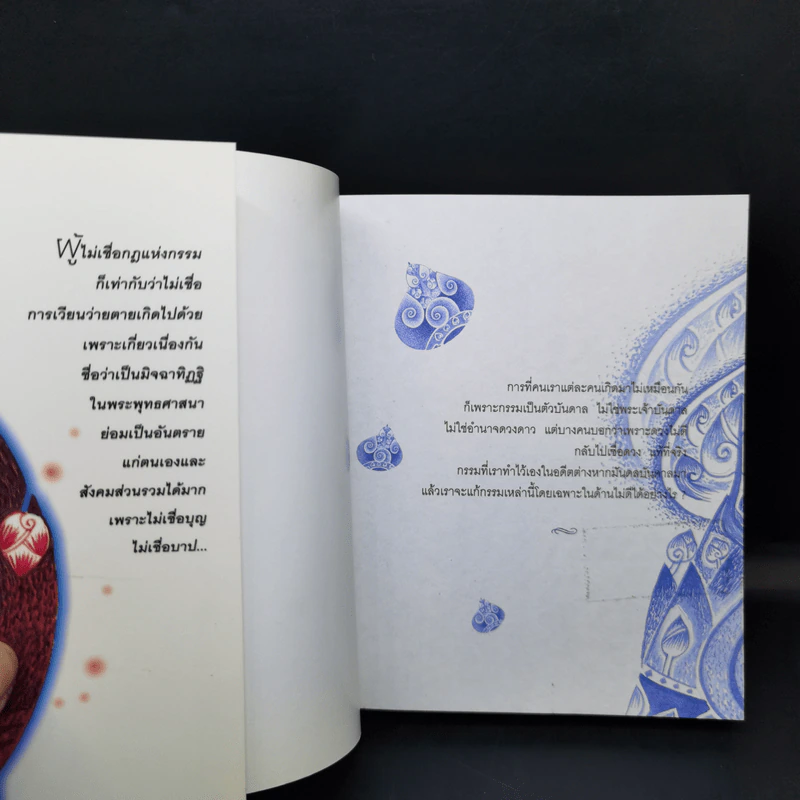 ผู้ไม่เชื่อกฎแห่งกรรม
ก็เท่ากับว่าไม่เชื่อ
การเวียนว่ายตายเกิดไปด้วย
เพราะเกี่ยวเนื่องกัน
ชื่อว่าเป็นมิจฉาทิฏฐิ
ในพระพุทธศาสนา
ย่อมเป็นอันตราย
แก่ตนเองและ
สังคมส่วนรวมได้มาก
เพราะไม่เชื่อบุญ
ไม่เชื่อบาป...
การที่คนเราแต่ละคนเกิดมาไม่เหมือนกัน
ก็เพราะกรรมเป็นตัวบันดาล ไม่ใช่พระเจ้าบันดาล
ไม่ใช่อำนาจดวงดาว แต่บางคนบอกว่าเพราะดวงไม่ดี
กลับไปเชื่อดวง แท้ที่จริง
กรรมที่เราทำไว้เองในอดีตต่างหากมันดลบันดาลมา
แล้วเราจะแก้กรรมเหล่านี้โดยเฉพาะในด้านไม่ดีได้อย่างไร ?